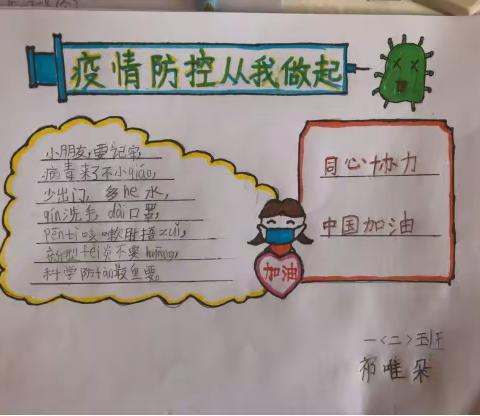 疫情防控从我做起
小朋友,要记牢,
病毒来了不小qiáo,
少出门,多he水,
qín洗手dài口罩,
Pēntì咳嗽肘捂zuǐ,
新型fèi炎不要huāng,
科学防fàn最重要。
同心协力
中国加油
加油
一〈二〉班
祁唯朵